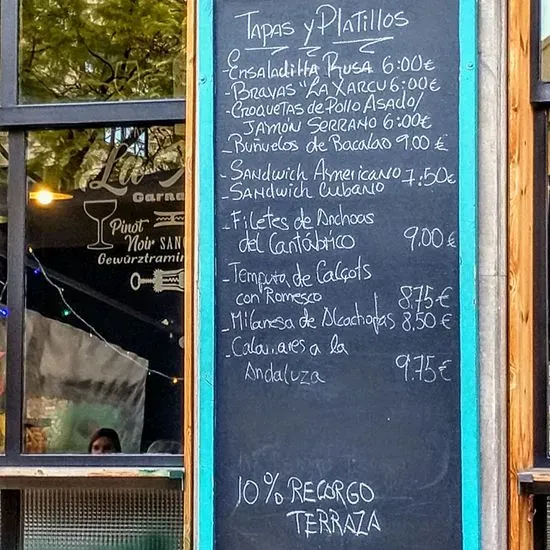 Tapas y Platillos
- Ensaladilla Rusa 6:00€
- Bravas "La Xarcu 6:00€
- Croquetas de Pollo Asado/
Jamón Serrano 6:00€
- Buñuelos de Bacalao 9.00 €
- Sandwich Americano 7,50€
- Sandwich Cubano
- Filetes de Anchoas
del Cantábrico 9,00 €
- Tempura de Calçots
con Romesco 8,75€
- Milanesa de Alcachofas 8,50 €
- Calamares a la
Andaluza 9,75€
10% RECARGO
TERRAZA
La
Garna
Pinot
Noir
Gewürztramin